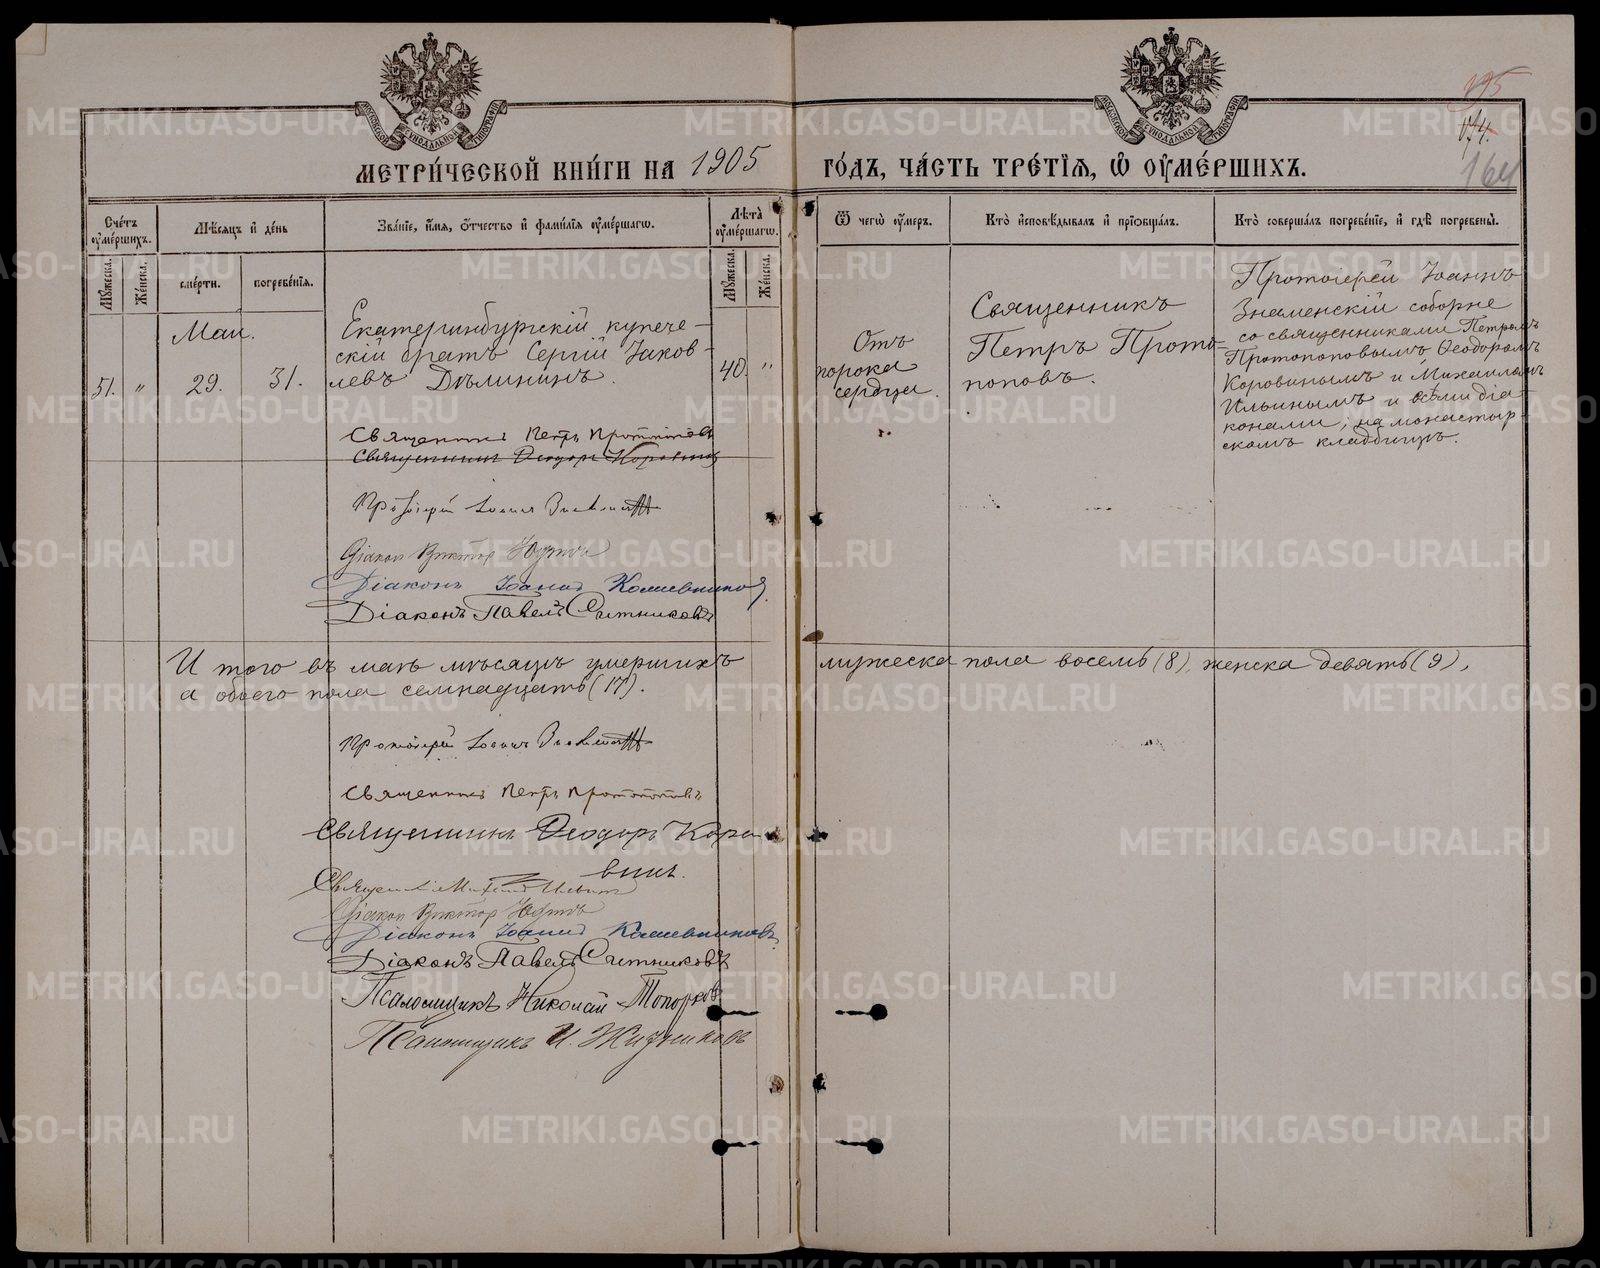 195
174.
164
МОСКОВСКОЙ СѴНОДАЛЬНОЙ ТИПОГРАФІИ
МОСКОВСКОЙ СѴНОДАЛЬНОЙ ТИПОГРАФІИ
МЕТРИ́ЧЕСКОЙ КНИ́ГИ НА 1905 ГО́ДЪ, ЧА́СТЬ ТРЕ́ТІѦ, Ѡ҆ ОУ҆МЕ́РШИХЪ.
Сче́тъ оу҆ме́ршихъ.
Мꙋ́жеска.
Же́нска.
Мѣ́сѧцъ и҆ де́нь
сме́рти.
погребе́нїѧ.
Зва́нїе, и҆́мѧ, ѻ҆́тчество и҆ фами́лїѧ оу҆ме́ршагѡ.
Лѣ̀та̀ оу҆ме́ршагѡ.
Мꙋ́жеска.
Же́нска.
Ѿ чегѡ̀ оу҆́меръ.
Кто̀ и҆сповѣ́дывалъ и҆ прїѡбща́лъ.
Кто̀ соверша́лъ погребе́нїе, и҆ гдѣ̀ погребены̀.
Май.
51. „ 29. 31.
Екатеринбургскій купече-
скій братъ Сергій Іаков-
левъ Дѣлининъ.
40. „
Отъ
порока
сердца.
Священникъ
Петръ Прото-
поповъ.
Протоіерей Іоаннъ
Знаменскій соборне
со священниками Петромъ
Протопоповымъ Ѳеодоромъ
Коровинымъ и Михаиломъ
Ильинымъ и всѣми діа
конами; на монастыр-
скомъ кладбищѣ.
Священникъ Петръ Протопоповъ
Священникъ Ѳеодоръ Коровинъ
Протоіерей Іоаннъ Знаменскій
Діаконъ Викторъ
Діаконъ Іоаннъ Кошевниковъ
Діаконъ Павелъ Ситниковъ
И того въ маѣ мѣсяцѣ умершихъ мужеска пола восемь (8), женска девять (9),
а обоего пола семнадцать (17).
Протоіерей Іоаннъ Знаменскій
Священникъ Петръ Протопоповъ
Священникъ Ѳеодоръ Коро-
винъ.
Священникъ Михаилъ Ильинъ
Діаконъ Викторъ
Діаконъ Іоаннъ Кошевниковъ
Діаконъ Павелъ Ситниковъ
Псаломщикъ Николай Топорковъ
Псаломщикъ И.
METRIKI.GASO-URAL.RU